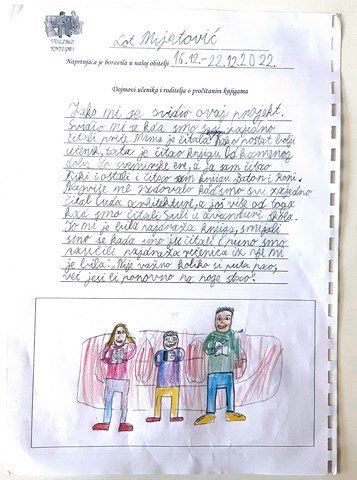 Lot Mijatović
Naprtnjača je boravila u našoj obitelji 16.12.-22.12.2022.
Dojmovi učenika i roditelja o pročitanim knjigama
Jako mi se svidio ovaj projekt.
Svidio mi se kda smo svi zajedno
čitali priče. Mama je čitala Kako postat bolji
učenik, tata je čitao knjigu Od kamenog
doba do svemirske ere, a ja sam čitao
Kiki i ostali i čitao sam knjigu Baton i Roni.
Najviše me radovalo kad smo svi zajedno
čital čuda arhitekture, a još više od toga
kad smo čitali Suli u avanturi škola.
To mi je bila najdraža knjiga, smijali
smo se kada smo je čitali i puno smo
naučili najdraža rečenica iz nje mi
je bila: "Nije važno koliko si puta pao,
već jesi li ponovno na noge stao".